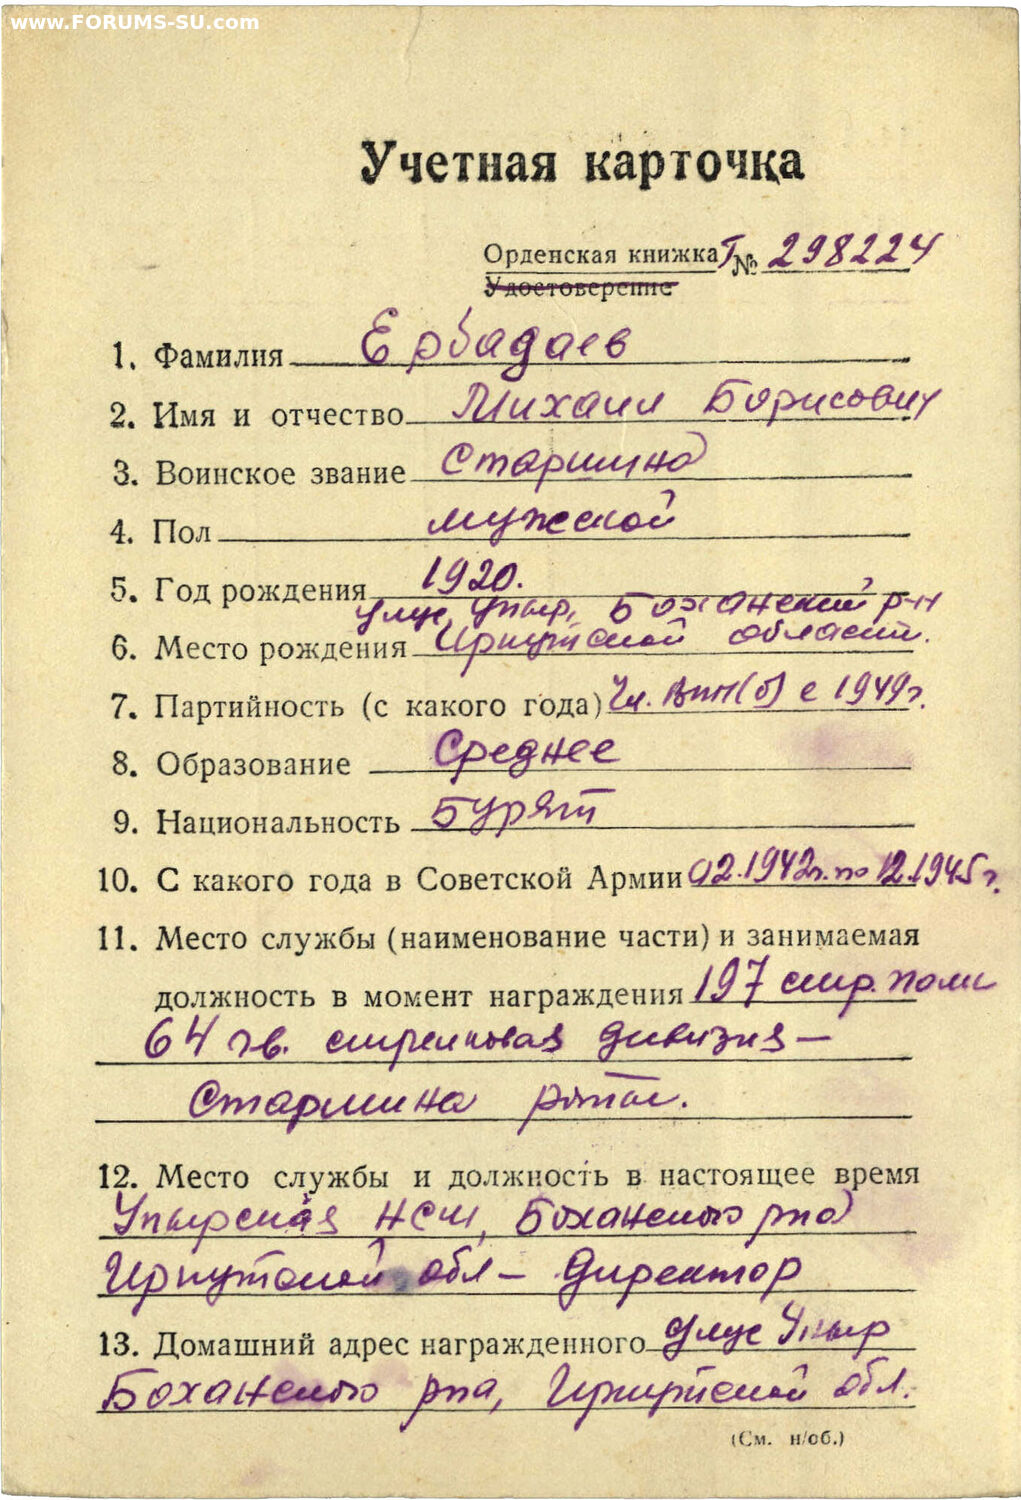 www.FORUMS-SU.com
Учетная карточка
Орденская книжка Г № 298224
Удостоверение
1. Фамилия Ербадаев
2. Имя и отчество Михаил Борисович
3. Воинское звание Старшина
4. Пол мужской
5. Год рождения 1920.
улус Упыр, Боханский р-н
6. Место рождения Иркутской области.
7. Партийность (с какого года) Чл. ВКП(б) с 1949г.
8. Образование Среднее
9. Национальность Бурят
10. С какого года в Советской Армии 02.1942г. по 12.1945г.
11. Место службы (наименование части) и занимаемая
должность в момент награждения 197 стр. полк
64 гв. стрелковая дивизия –
Старшина роты.
12. Место службы и должность в настоящее время
Упырская НСШ, Боханского р-на
Иркутской обл – директор
13. Домашний адрес награжденного улус Упыр
Боханского р-на, Иркутской обл.
(См. н/об.)